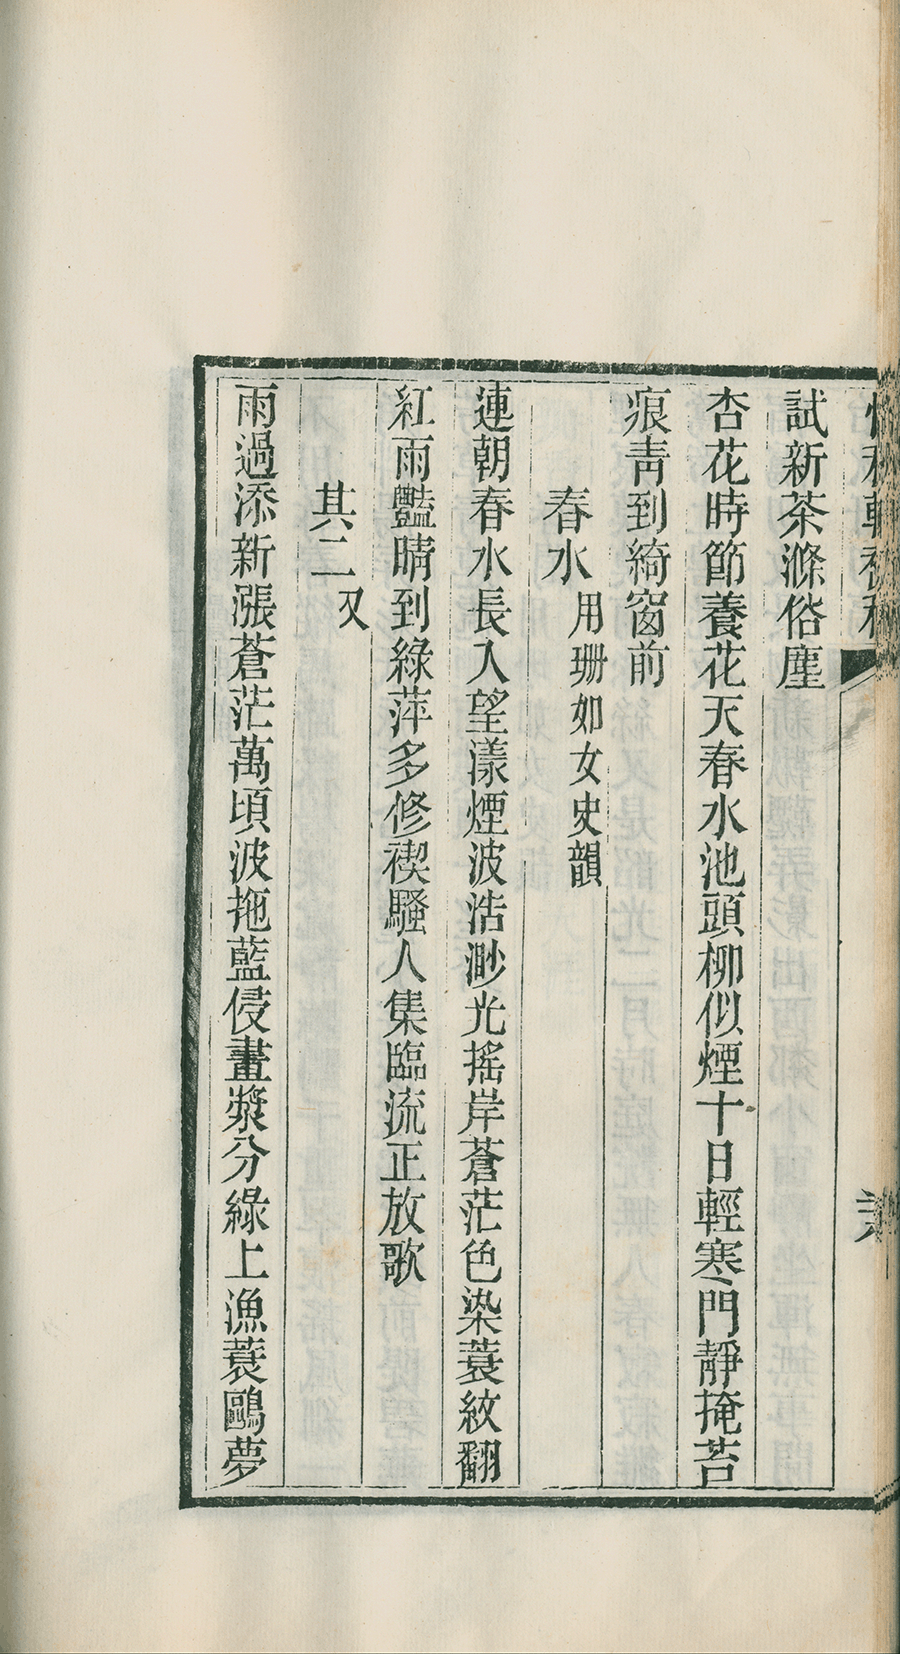 試新茶滌俗塵
杏花時節養花天春水池頭柳似煙十日輕寒門靜掩苔
痕青到綺窗前
春水用珊如女史韻
連朝春水長入望漾煙波浩渺光搖岸蒼茫色染蓑紋翻
紅雨豔晴到綠萍多修禊騷人集臨流正放歌
其二又
雨過添新漲蒼茫萬頃波拖藍侵畫槳分綠上漁蓑鷗夢